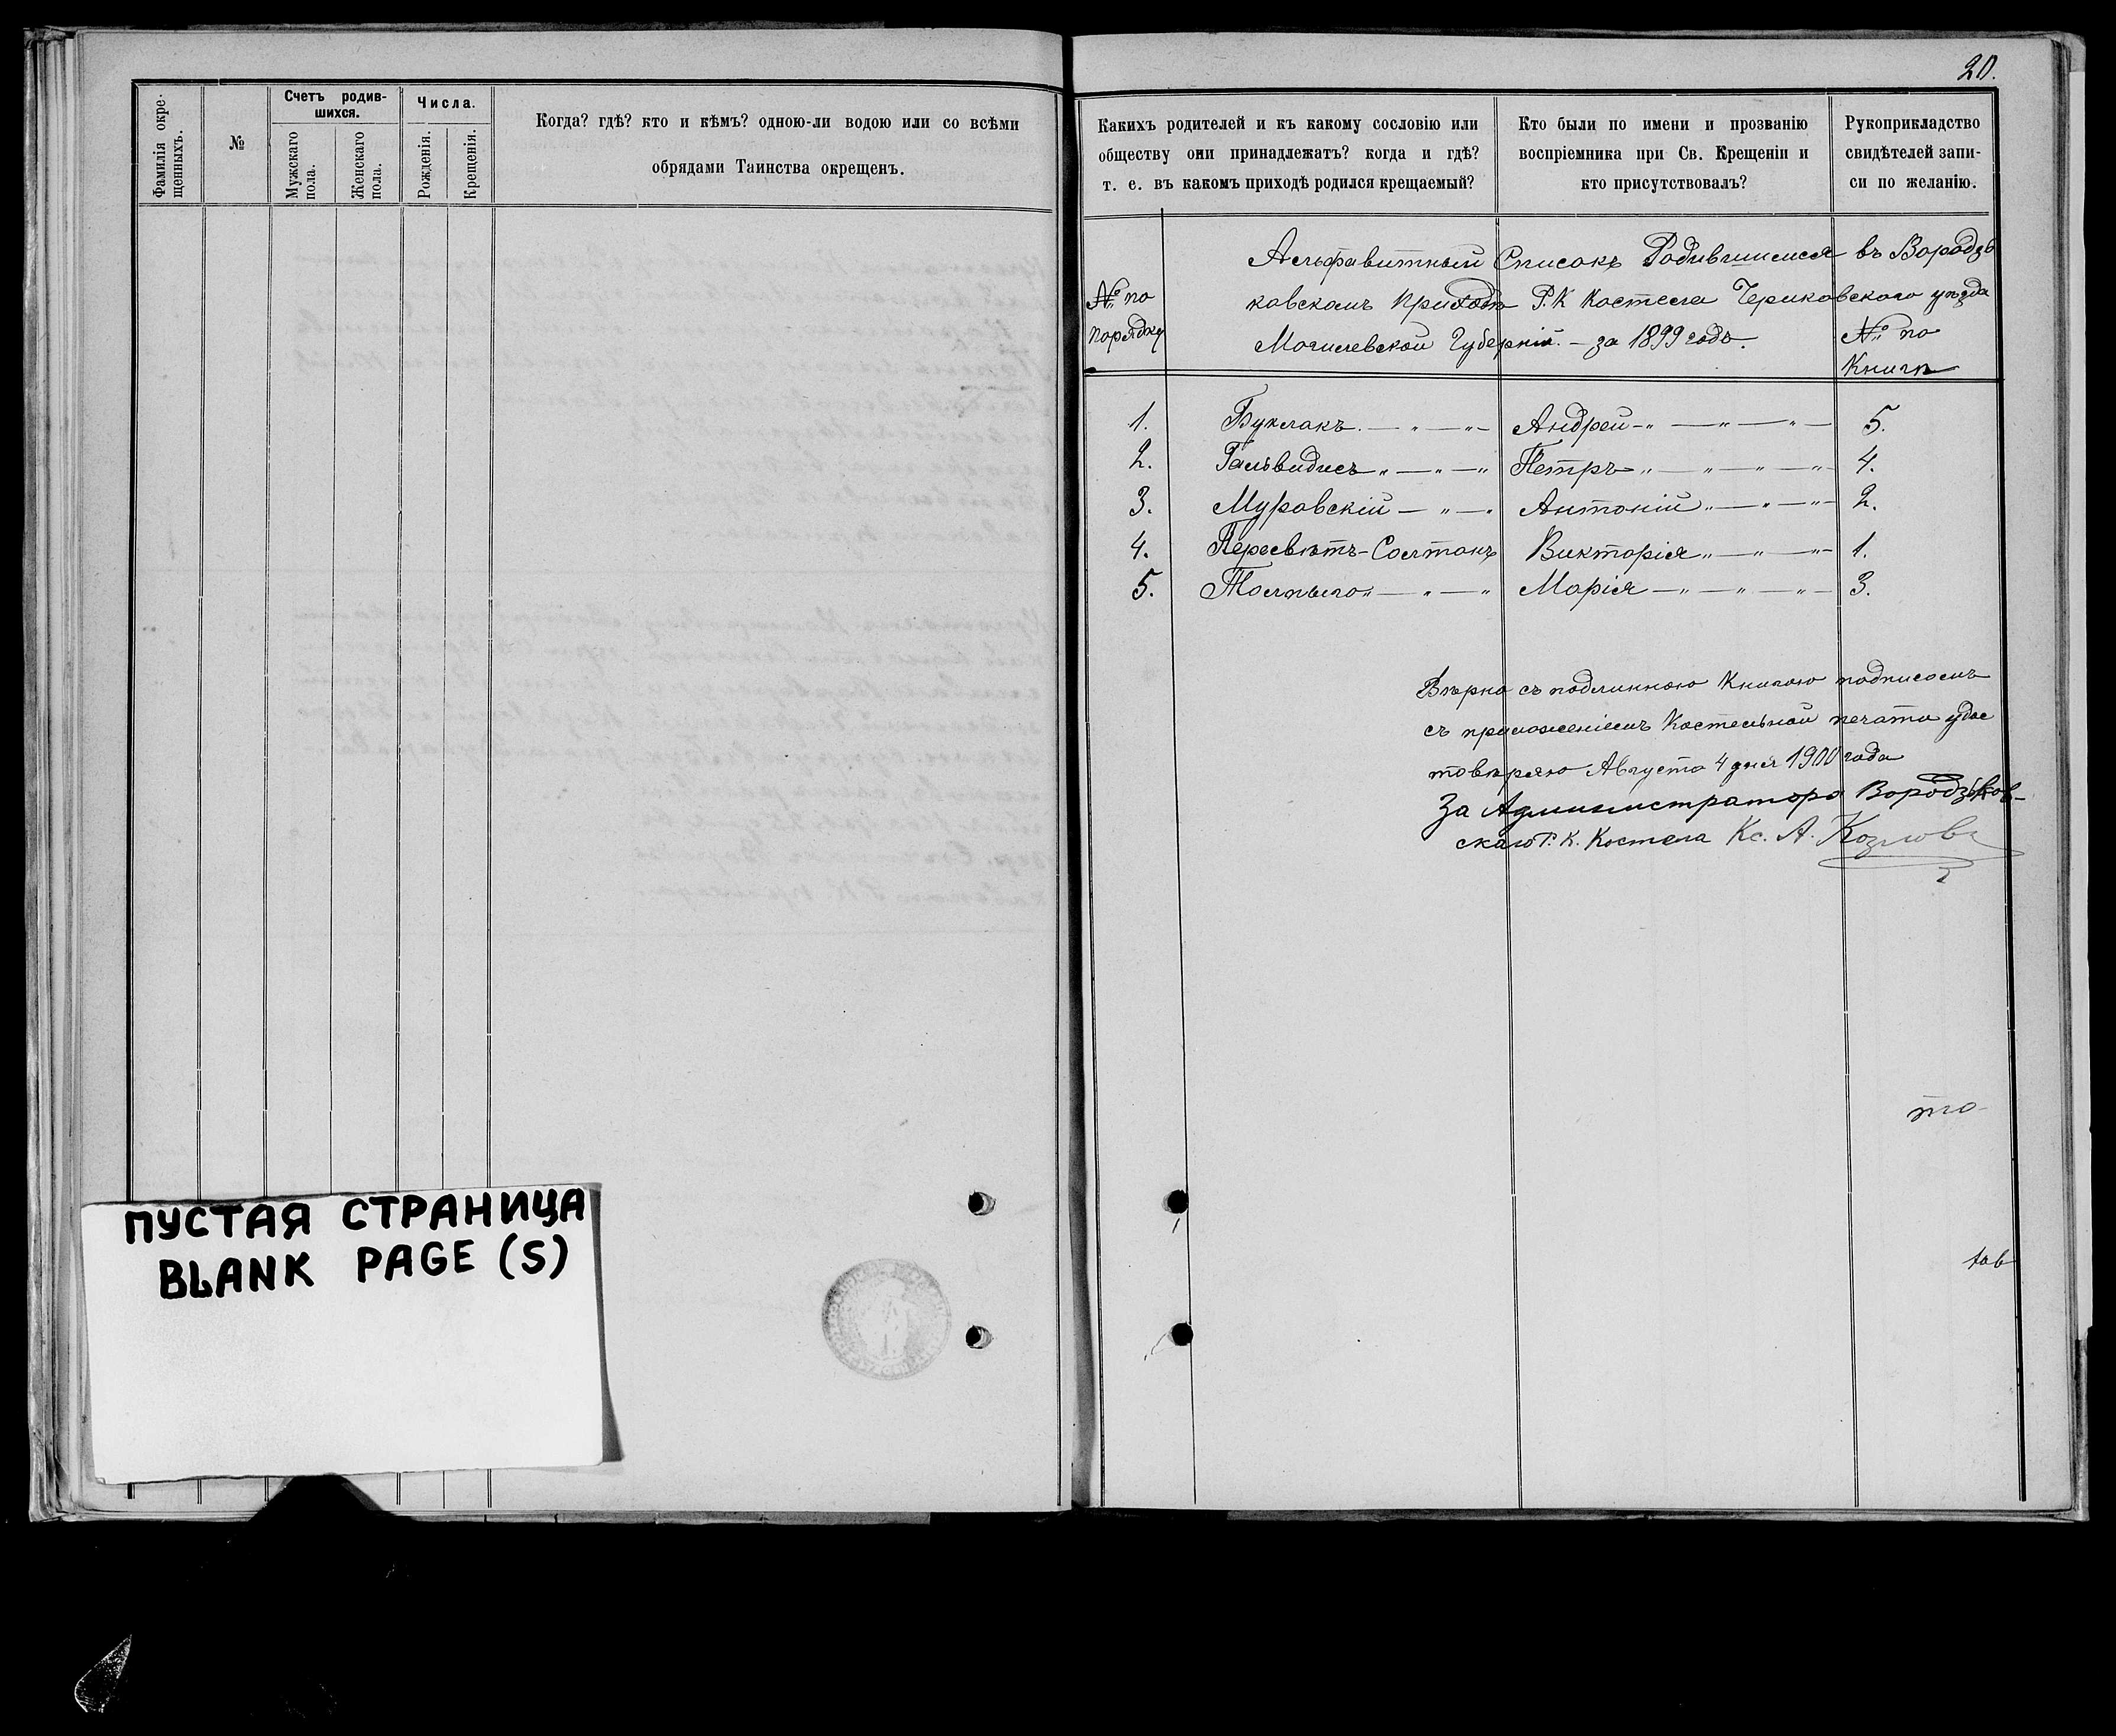 20.
Фамилія окре-
щенныхъ.
№
Счетъ родив-
шихся.
Мужскаго
пола.
Женскаго
пола.
Числа.
Рожденія.
Крещенія.
Когда? гдѣ? кто и кѣмъ? одною-ли водою или со всѣми
обрядами Таинства окрещенъ.
Какихъ родителей и къ какому сословію или
обществу они принадлежатъ? когда и гдѣ?
т. е. въ какомъ приходѣ родился крещаемый?
Кто были по имени и прозванію
воспріемника при Св. Крещеніи и
кто присутствовалъ?
Рукоприкладство
свидѣтелей запи-
си по желанію.
№ по
порядку
Альфавитный Списокъ Родившимися въ Вородзь
ковскомъ Приходѣ Р.К Костела Чериковского уѣзда
Могилевской Губерніи. — за 1899 годъ.
№ по
Книгѣ
1. Буклакъ. Андрей 5.
2. Гальвидисъ Петръ 4.
3. Муровскій Антоній 2.
4. Пересвѣтъ-Солтанъ Викторія 1.
5. Толпыго Марія 3.
Вѣрно съ подлинною Книгою подписомъ
съ приложеніемъ Костельной печати удос
товѣряю Августа 4 дня 1900 года
За Администратора Вородзьков-
скаго Р. К. Костела Кс. А. Козлова
то
ПУСТАЯ СТРАНИЦА
BLANK PAGE (S)